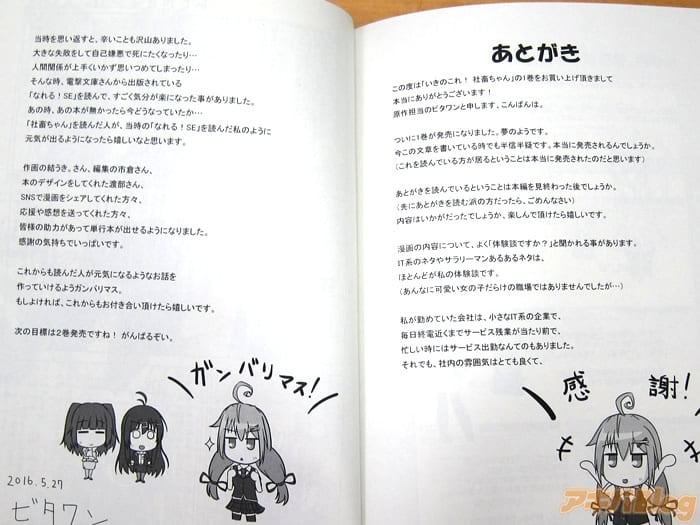 あとがき
この度は「いきのこれ! 社畜ちゃん」の1巻をお買い上げ頂きまして
本当にありがとうございます!
原作担当のビタワンと申します、こんばんは。
ついに1巻が発売になりました。夢のようです。
今この文章を書いている時でも半信半疑です。本当に発売されるんでしょうか。
(これを読んでいる方が居るということは本当に発売されたのだと思います)
あとがきを読んでいるということは本編を見終わった後でしょうか。
(先にあとがきを読む派の方だったら、ごめんなさい)
内容はいかがだったでしょうか、楽しんで頂けたら嬉しいです。
漫画の内容について、よく「体験談ですか?」と聞かれる事があります。
IT系のネタやサラリーマンあるあるネタは、
ほとんどが私の体験談です。
(あんなに可愛い女の子だらけの職場ではありませんでしたが…)
私が勤めていた会社は、小さなIT系の企業で、
毎日終電近くまでサービス残業が当たり前で、
忙しい時にはサービス出勤なんてのもありました。
それでも、社内の雰囲気はとても良くて、
感謝!
当時を思い返すと、辛いことも沢山ありました。
大きな失敗をして自己嫌悪で死にたくなったり…
人間関係が上手くいかず思いつめてしまったり…
そんな時、電撃文庫さんから出版されている
「なれる!SE」を読んで、すごく気分が楽になった事がありました。
あの時、あの本が無かったら今どうなっていたか…
「社畜ちゃん」を読んだ人が、当時の「なれる!SE」を読んだ私のように
元気が出るようになったら嬉しいなと思います。
作画の結うき。さん、編集の市倉さん、
本のデザインをしてくれた渡部さん、
SNSで漫画をシェアしてくれた方々、
応援や感想を送ってくれた方々、
皆様の助力があって単行本が出せるようになりました。
感謝の気持ちでいっぱいです。
これからも読んだ人が元気になるようなお話を
作っていけるようガンバリマス。
もしよければ、これからもお付き合い頂けたら嬉しいです。
次の目標は2巻発売ですね! がんばるぞい。
ガンバリマス!
2016.5.27
ビタワン
アキバBlog